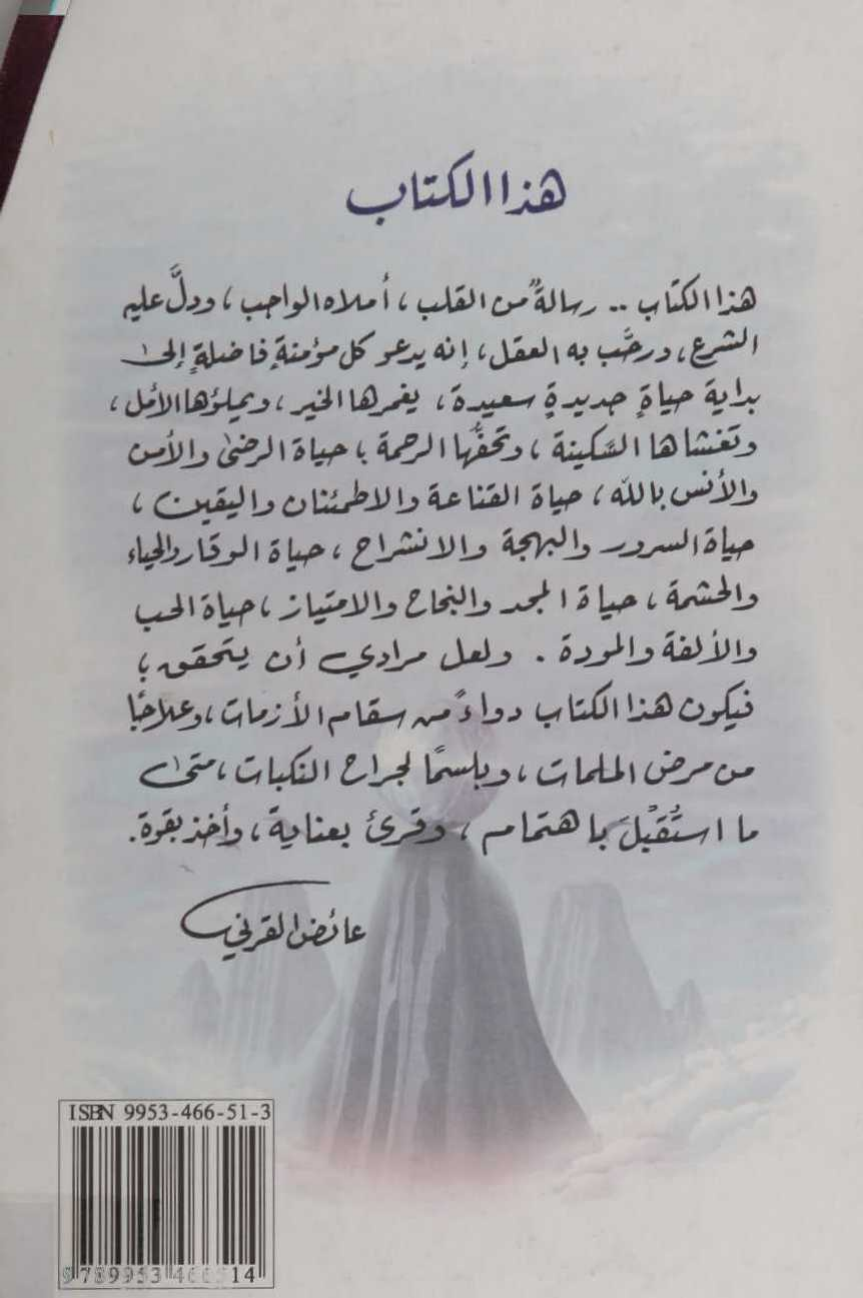 هذا الكتاب
هذا الكتاب .. رسالةٌ من القلب ، أملاه الواجب ، ودلَّ عليه
الشرع ، ورحَّب به العقل ، إنه يدعو كل مؤمنةٍ فاضلةٍ إلى
بداية حياةٍ جديدةٍ سعيدة ، يغمرها الخير ، ويملؤها الأمل ،
وتغشاها السَّكينة ، وتحفُّها الرحمة ؛ حياة الرضىٰ والأمن
والأنس بالله ، حياة القناعة والاطمئنان واليقين ،
حياة السرور والبهجة والانشراح ، حياة الوقار والحياء
والحشمة ، حياة المجد والنجاح والامتياز ، حياة الحب
والألفة والمودة . ولعل مرادي أن يتحقق ؛
فيكون هذا الكتاب دواءً من سقام الأزمات ، وعلاجًا
من مرض الملمات ، وبلسمًا لجراح النكبات ، متىٰ
ما استُقْبلَ باهتمام ، وقرئ بعناية ، وأخذ بقوة .
عائض القرني
ISBN 9953-466-51-3
9 789953 466514